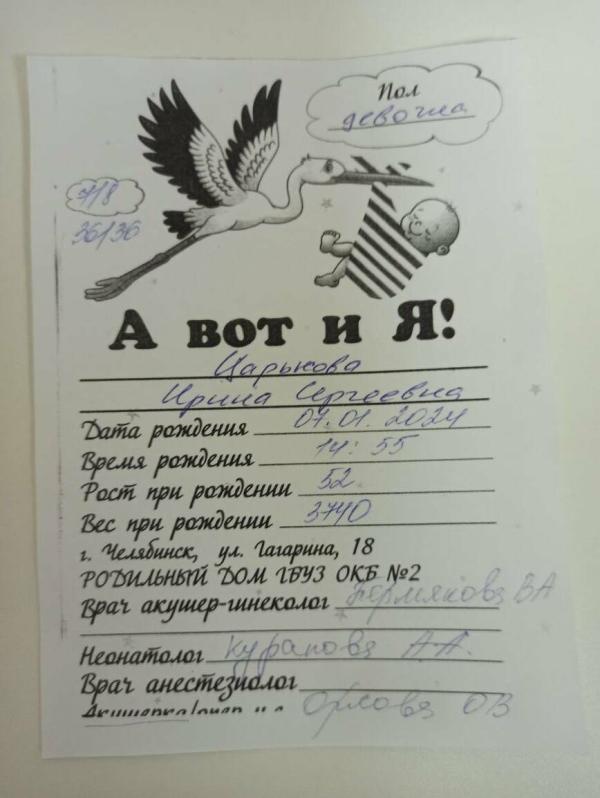 Пол
девочка
7/8
36/36
А вот и Я!
Царькова
Ирина Сергеевна
Дата рождения 07.01.2024
Время рождения 14:55
Рост при рождении 52
Вес при рождении 3740
г. Челябинск, ул. Гагарина, 18
РОДИЛЬНЫЙ ДОМ ГБУЗ ОКБ №2
Врач акушер-гинеколог Пермякова ВА
Неонатолог Курапова А.А.
Врач анестезиолог
Орлова ОВ